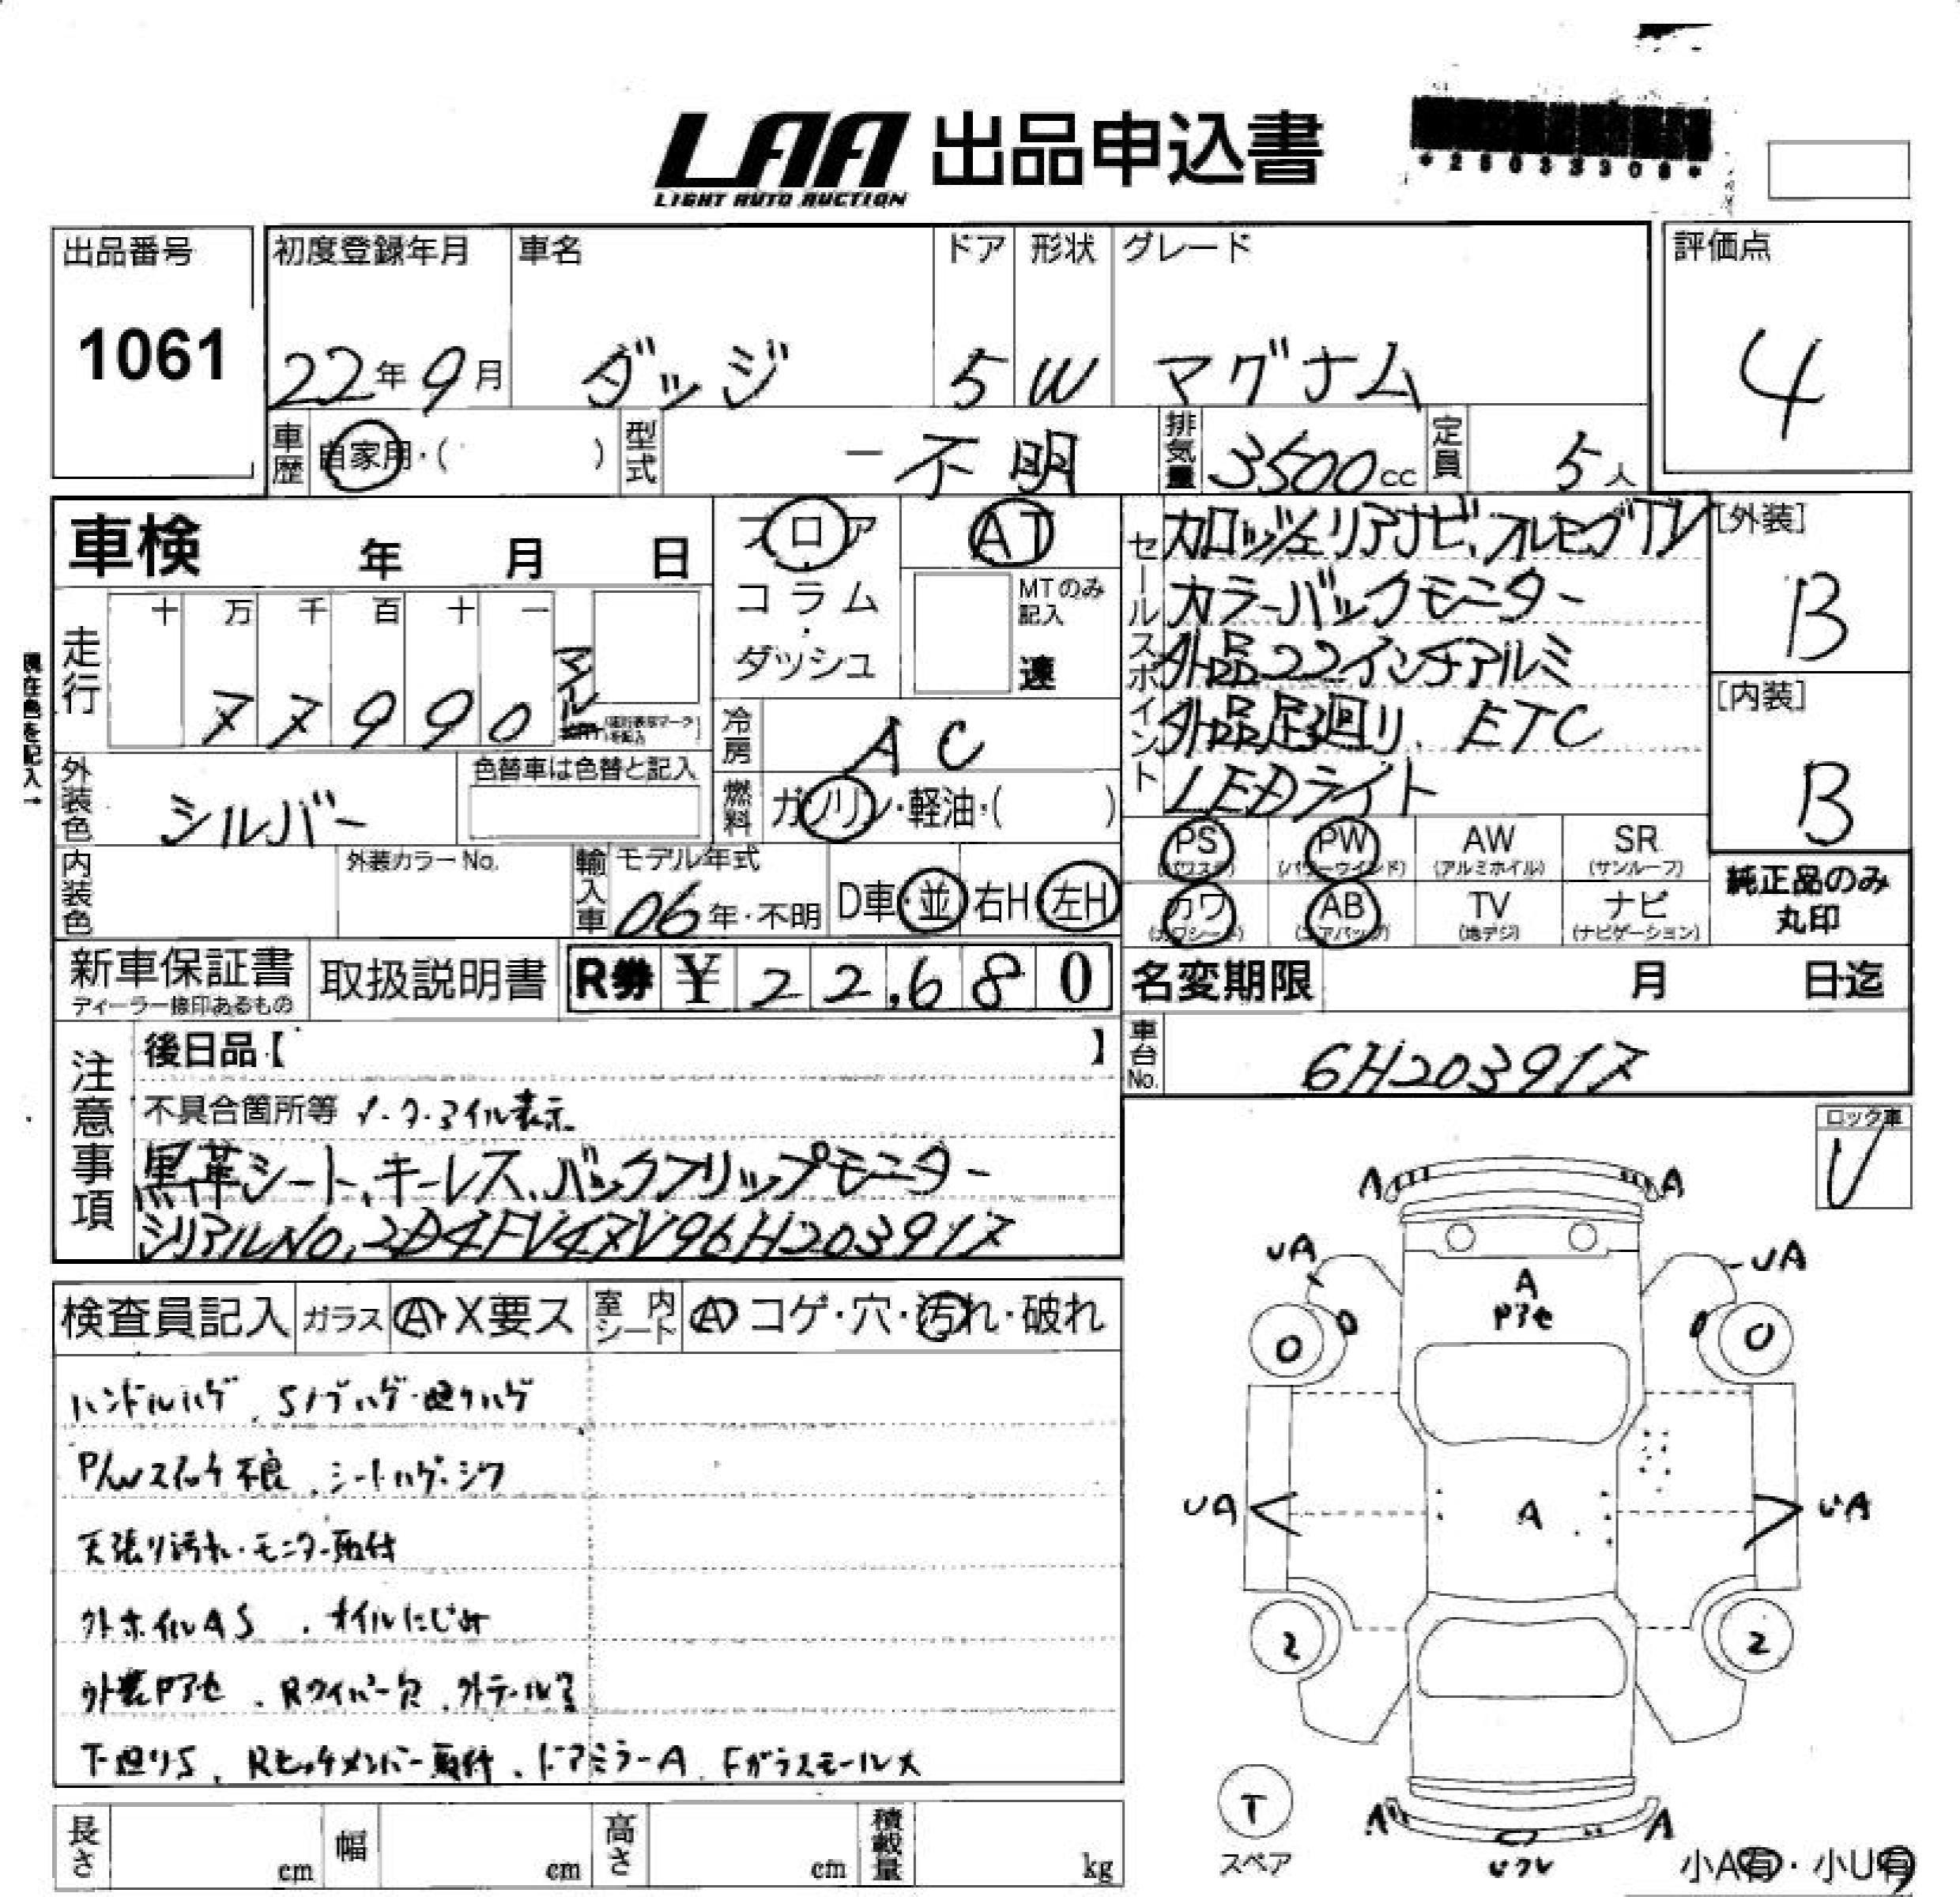 LAA 出品申込書
LIGHT AUTO AUCTION
出品番号
1061
初度登録年月 車名 ドア 形状 グレード
22年9月 ダッジ 5 W マグナム
評価点
4
車歴 自家用・( ) 型式 ー不明 排気量 3500cc 定員 5人
車検 年 月 日
フロア
コラム
・
ダッシュ
AT
MTのみ
記入
速
走行
十 万 千 百 十 一
77990 マイル
セールスポイント
カロッツェリアナビ、フルセグTV
カラーバックモニター
外品22インチアルミ
外品足廻り、ETC
LEDライト
[外装]
B
[内装]
B
冷房 AC
燃料 ガソリン・軽油・( )
外装色 シルバー
色替車は色替と記入
内装色
外装カラーNo.
輸入車 モデル年式
06年・不明 D車・並 右H・左H
PS PW AW SR
(パワステ) (パワーウインド) (アルミホイル) (サンルーフ)
カワ AB TV ナビ
(カワシート) (エアバッグ) (地デジ) (ナビゲーション)
純正品のみ
丸印
新車保証書
取扱説明書
R券 ¥22,680
名変期限 月 日迄
車台No. 6H203917
注意事項
後日品【 】
不具合箇所等 メーターマイル表示
黒革シート、キーレス、バックフリップモニター
シリアルNo, 2D4FV47V96H203917
ロック車
検査員記入 ガラス A・X要ス 室内シート A コゲ・穴・汚れ・破れ
ハンドルハゲ、Sノブハゲ・廻りハゲ
P/Wスイッチ不良、シートハゲ・シワ
天張り汚れ・モニター取付
外ホイルAS、オイルにじみ
外装Pアセ、Rワイパー欠、外テール
下廻りS、Rヒッチメンバー取付、ドアミラーA、Fガラスモール
A A
UA UA
A
Pアセ
0 0
UA A UA
2 2
T
スペア
A A
小A有・小U有
長さ cm 幅 cm 高さ cm 積載量 kg